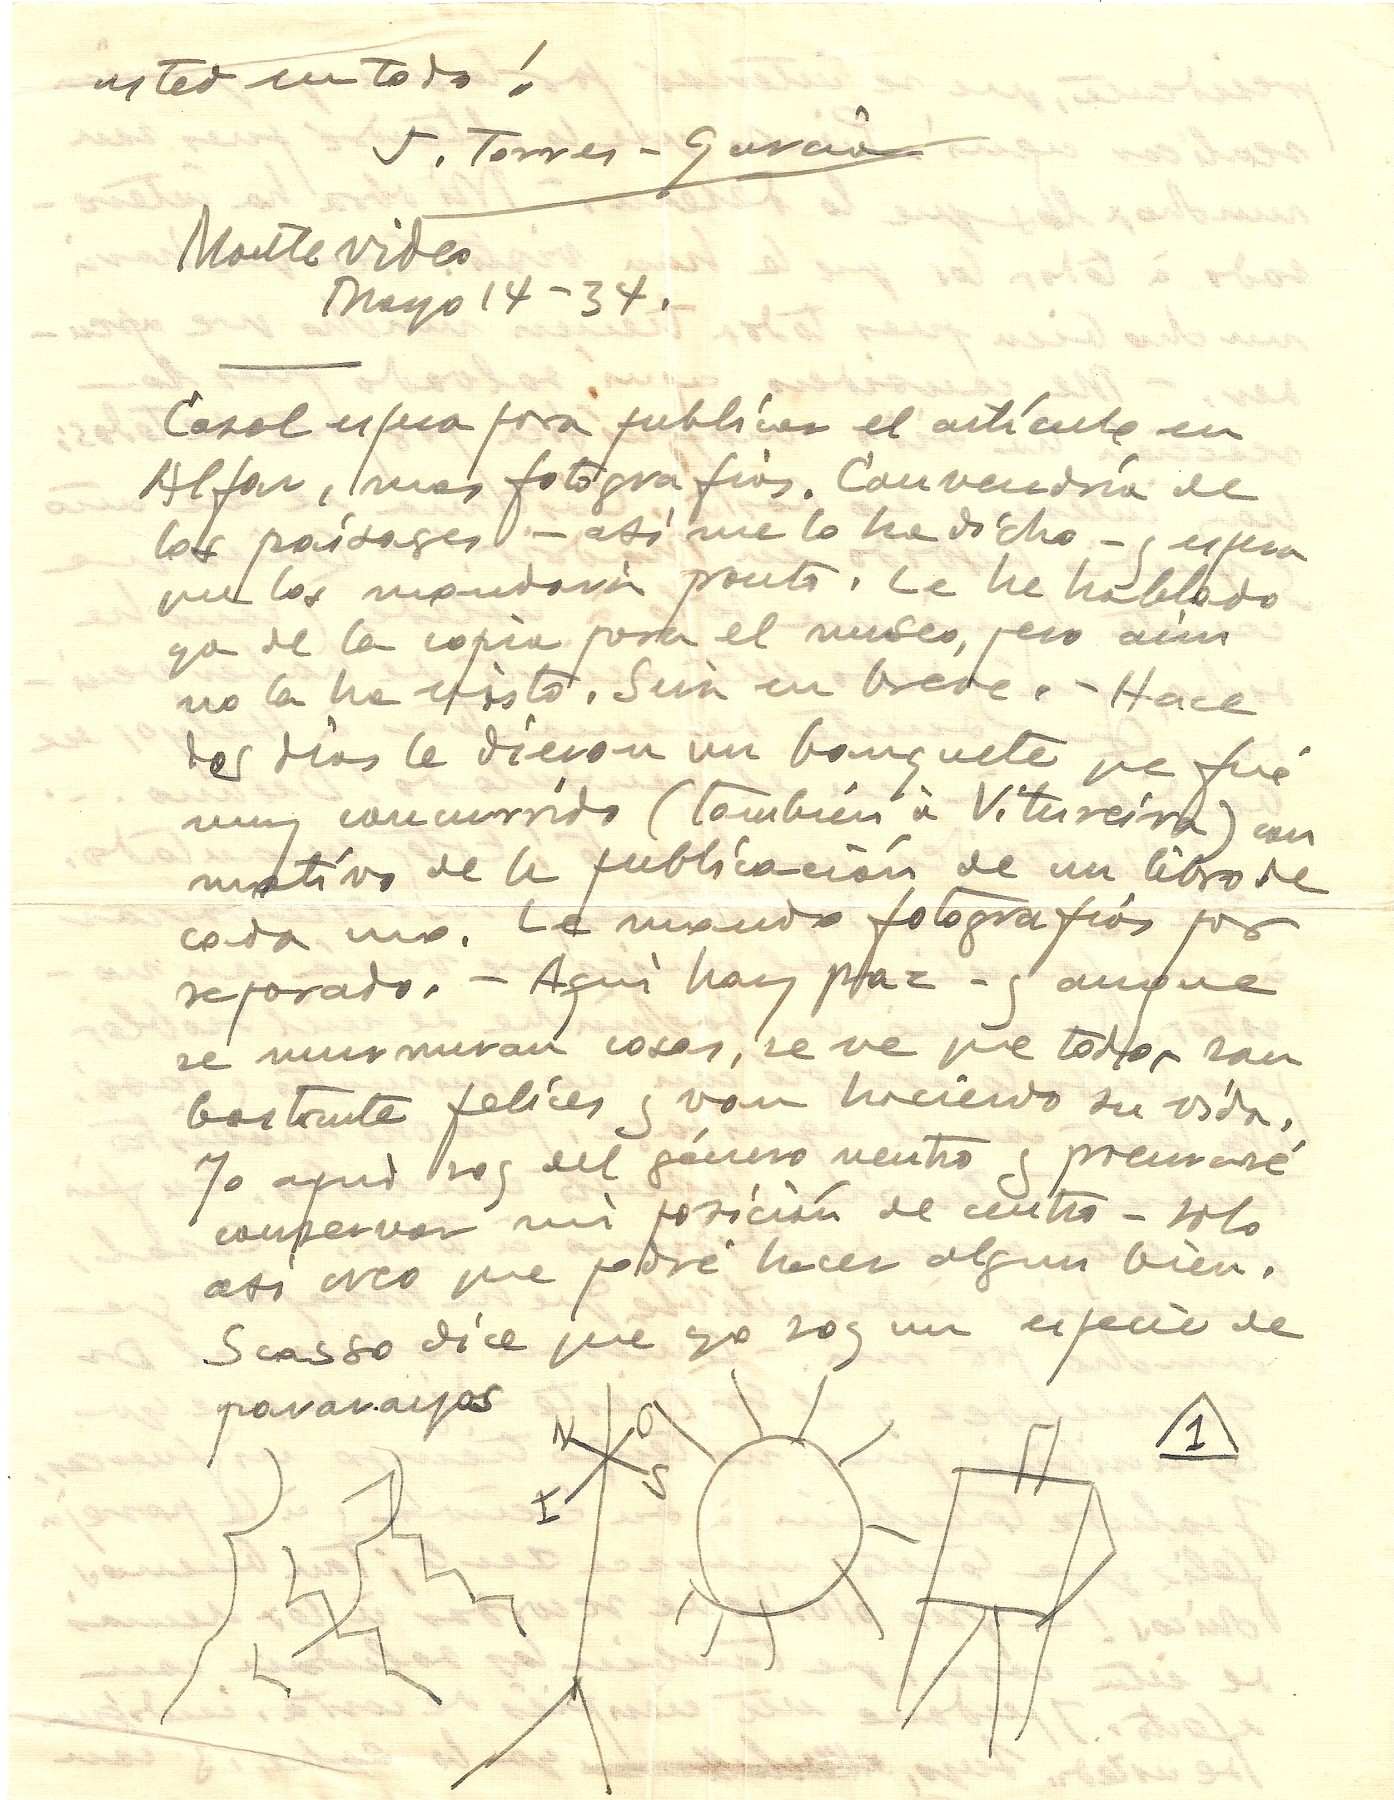 usted en todo!
J. Torres-García
Montevideo
Mayo 14-34.
Casal espera para publicar el artículo en
Alfar, mas fotografias. Convendría de
los paisages - asi me lo ha dicho - y espera
que los mandará pronto. Le he hablado
ya de la copia para el museo, pero aún
no la ha visto. Será en breve. - Hace
dos dias le dieron un banquete que fué
muy concurrido (también à Vitureira) con
motivo de la publicación de un libro de
cada uno. Le mando fotografias por
separado. - Aqui hay paz - y aunque
se murmuran cosas, se ve que todos son
bastante felices y van haciendo su vida.
Yo aqui soy del género neutro y procuraré
conservar mi posición de centro - solo
asi creo que podré hacer algun bien.
Scasso dice que yo soy un especie de
pararayos
N O
I S
1